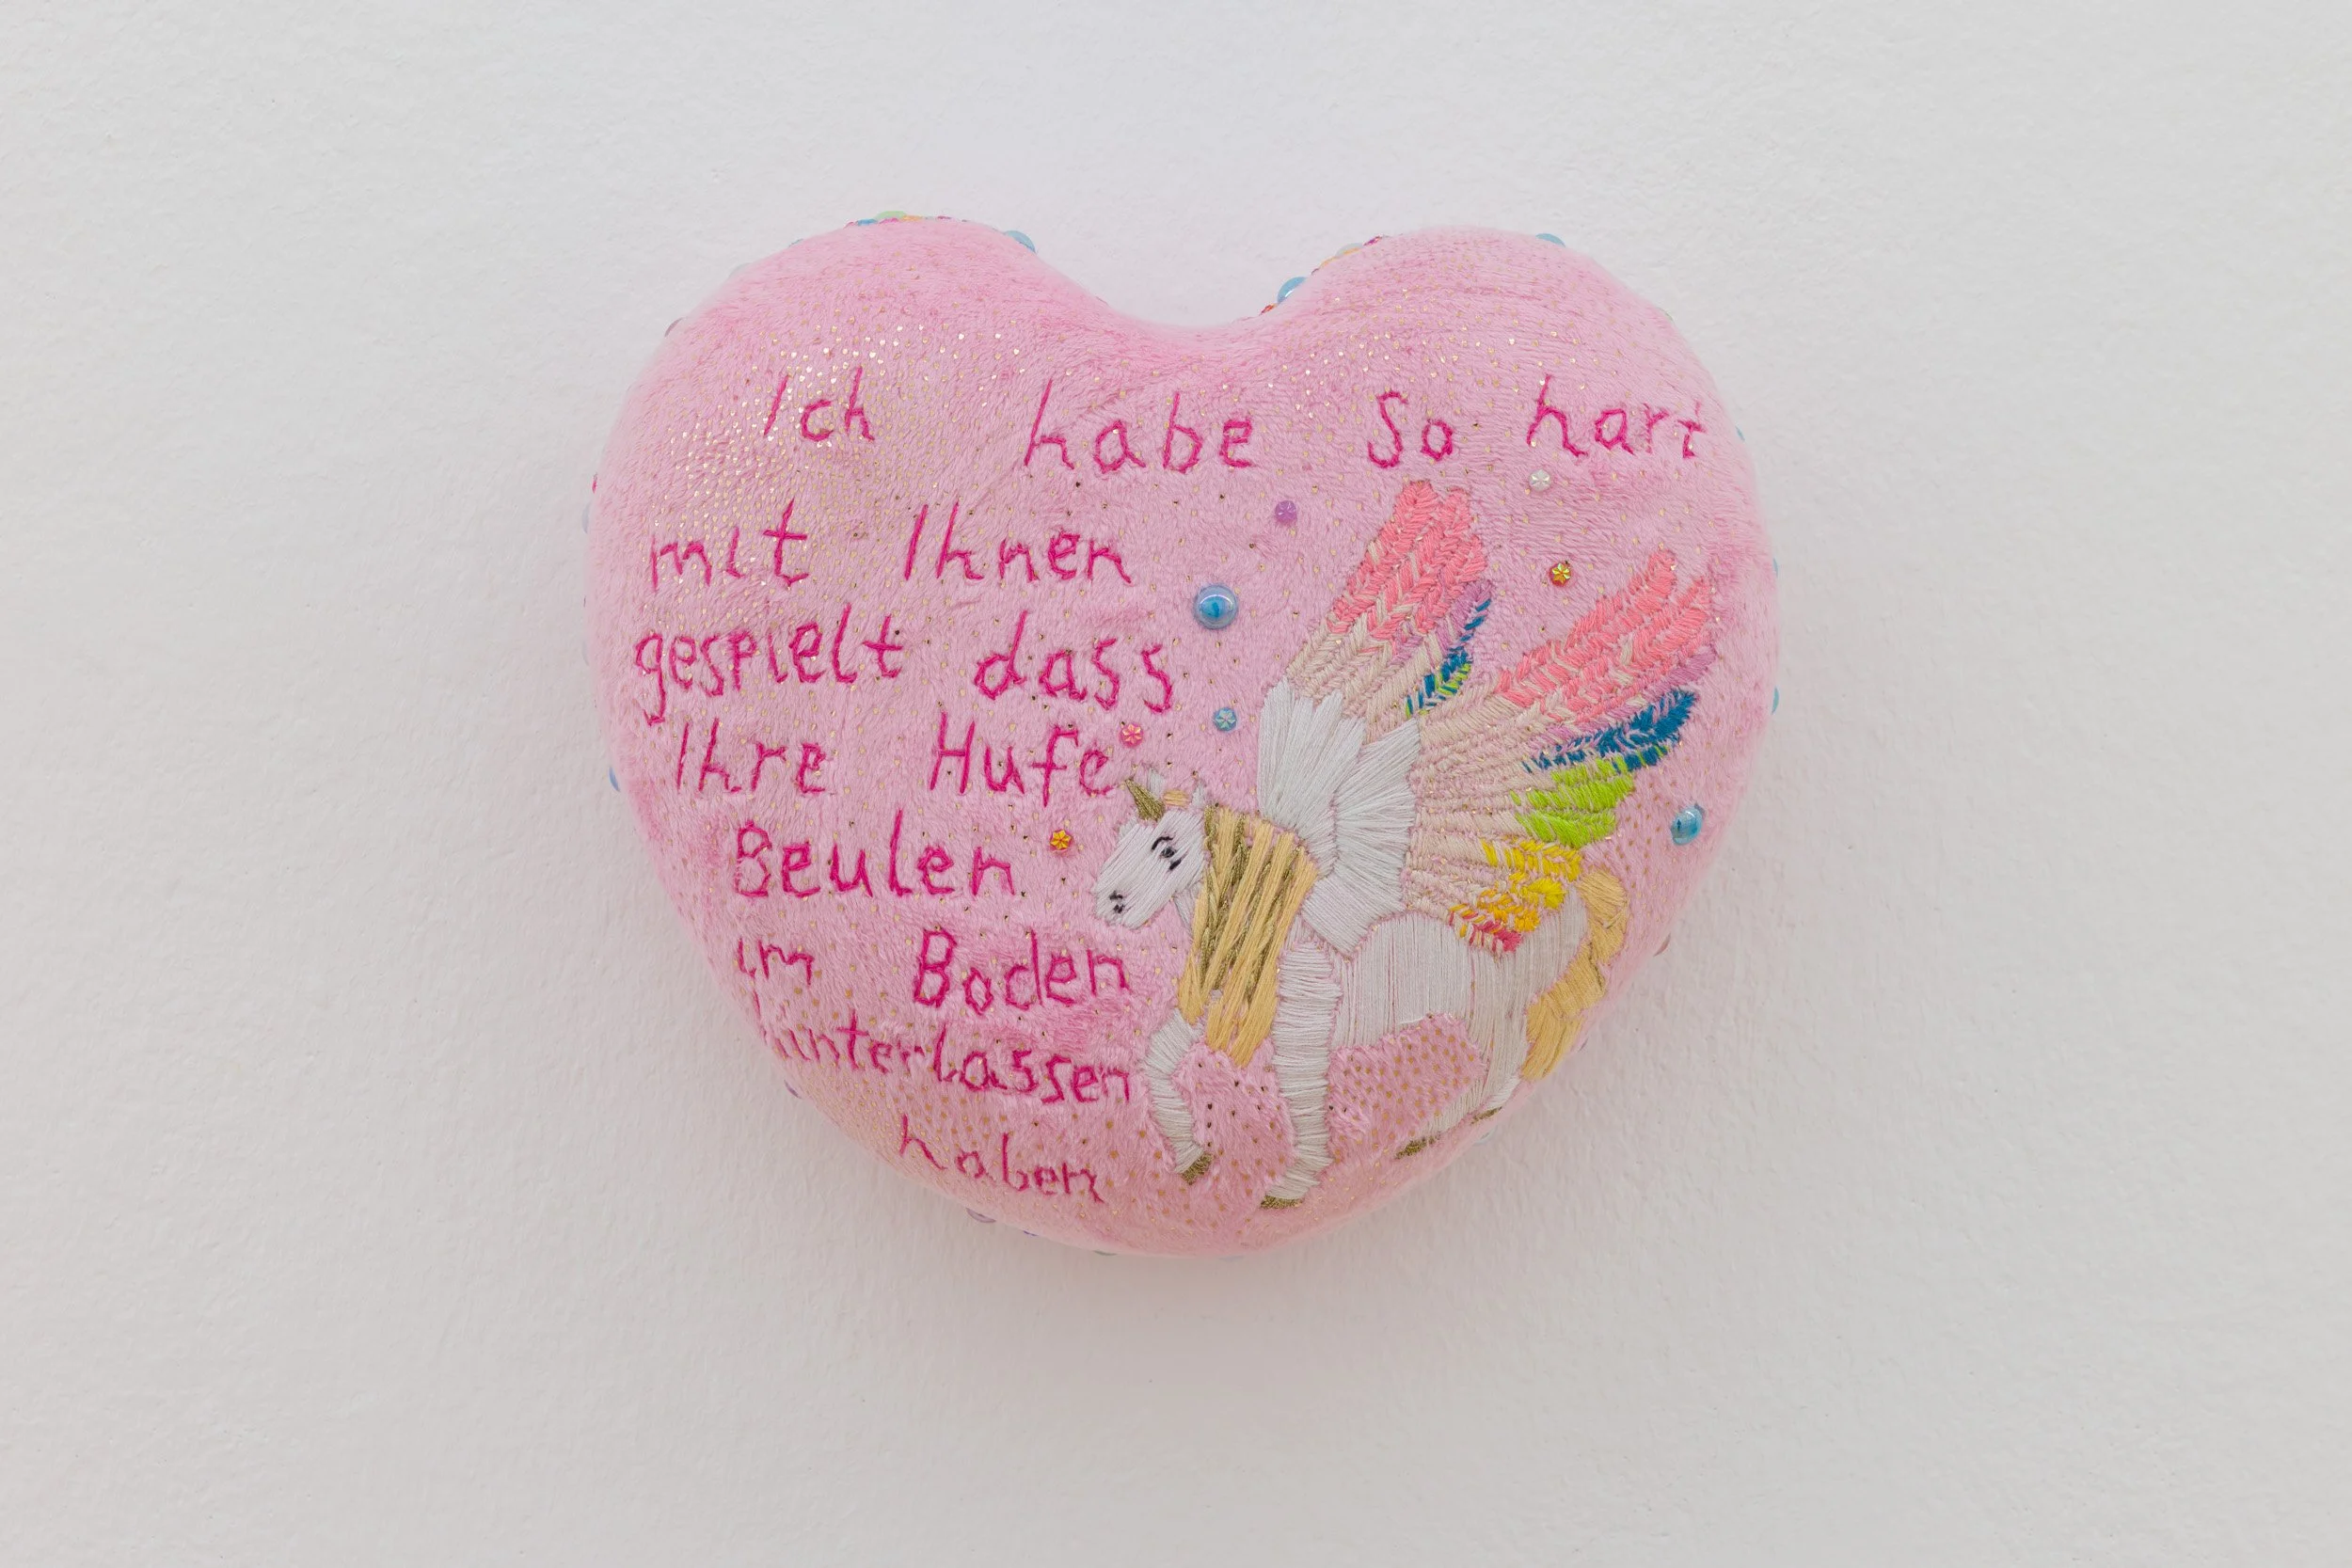 Ich habe so hart
mit Ihnen
gespielt dass
Ihre Hufe
Beulen
im Boden
hinterlassen
haben